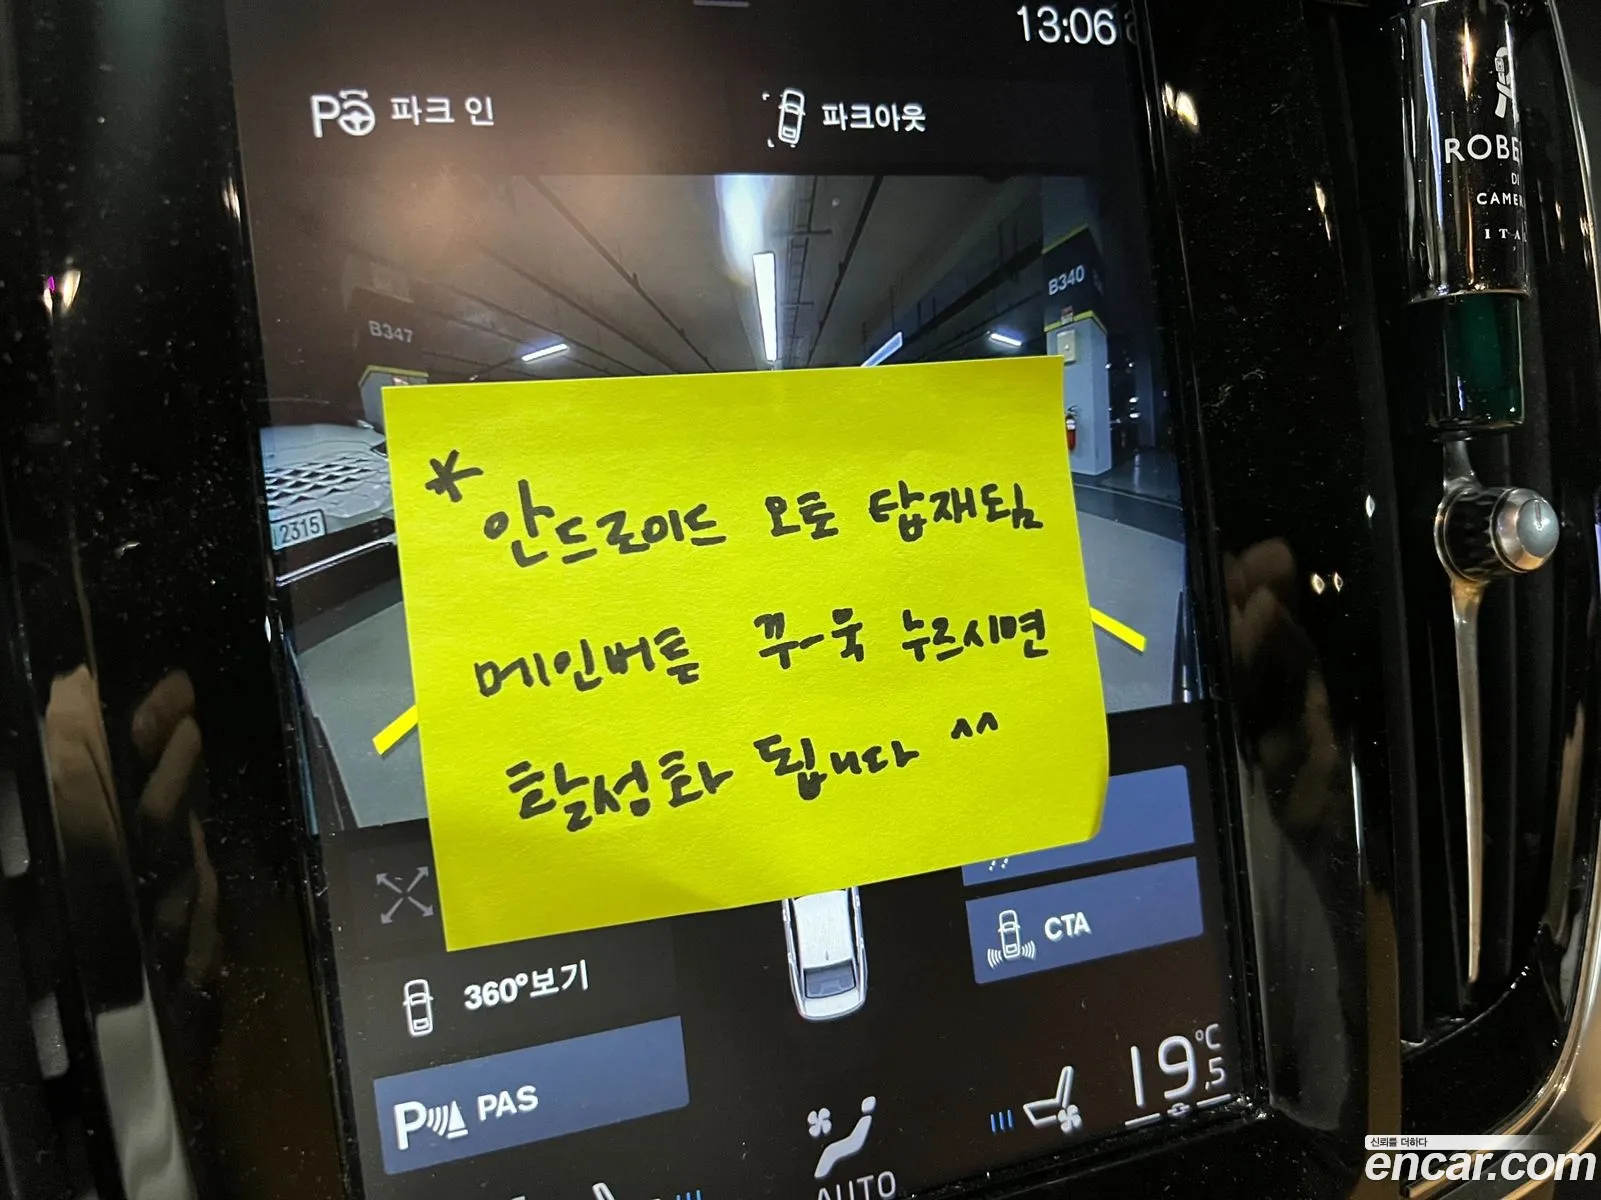 13:06
파크 인
파크아웃
B347
B340
2315
* 안드로이드 오토 탑재됨
메인버튼 꾸-욱 누르시면
활성화 됩니다 ^^
CTA
360°보기
PAS
19.5°C
AUTO
ROBE
DI
CAME
ITA
신뢰를 더하다
encar.com